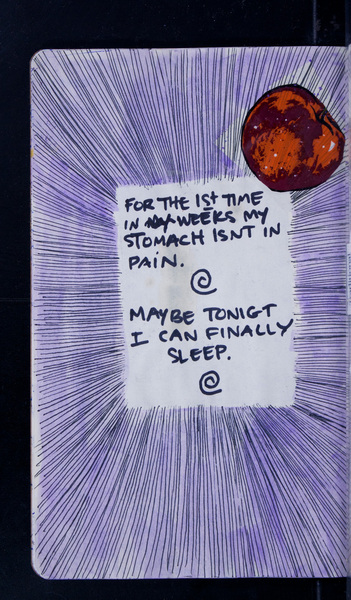 FOR THE 1St TIME
IN WEEKS MY
STOMACH ISNT IN
PAIN.
MAYBE TONIGT
I CAN FINALLY
SLEEP.